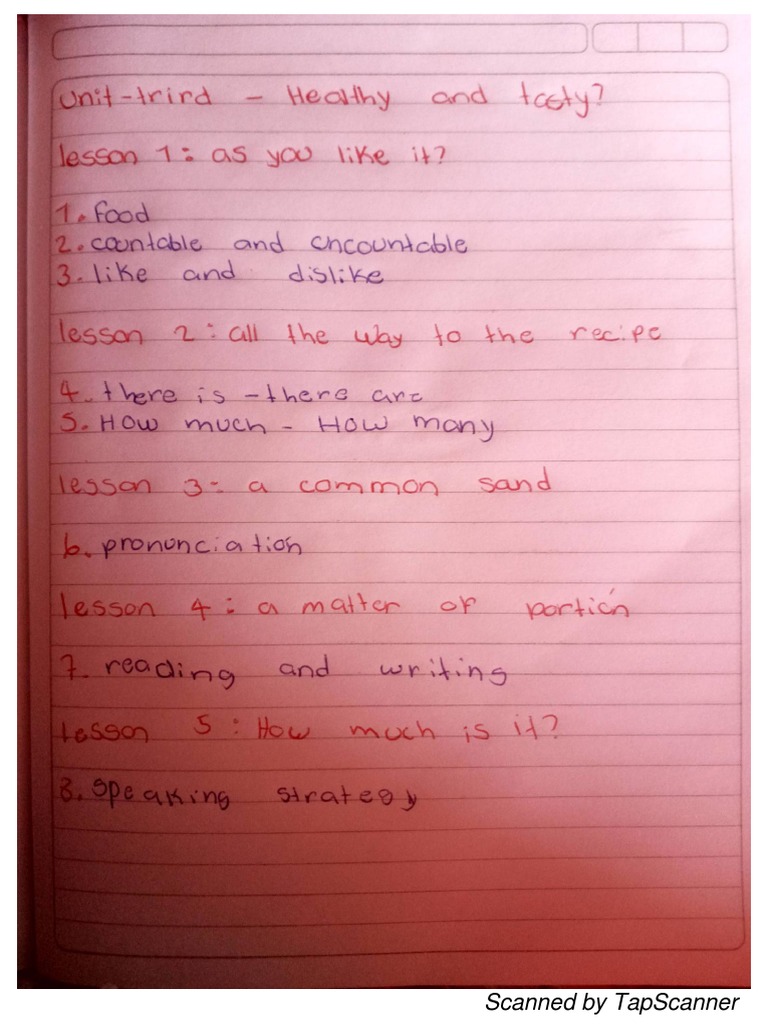 Unit-trird - Healthy and tasty?
lesson 1: as you like it?
1. food
2. countable and uncountable
3. like and dislike
lesson 2: all the way to the recipe
4. there is - there are
5. How much - How many
lesson 3: a common sand
6. pronunciation
lesson 4: a matter of portión
7. reading and writing
lesson 5: How much is it?
8. speaking strategy
Scanned by TapScanner